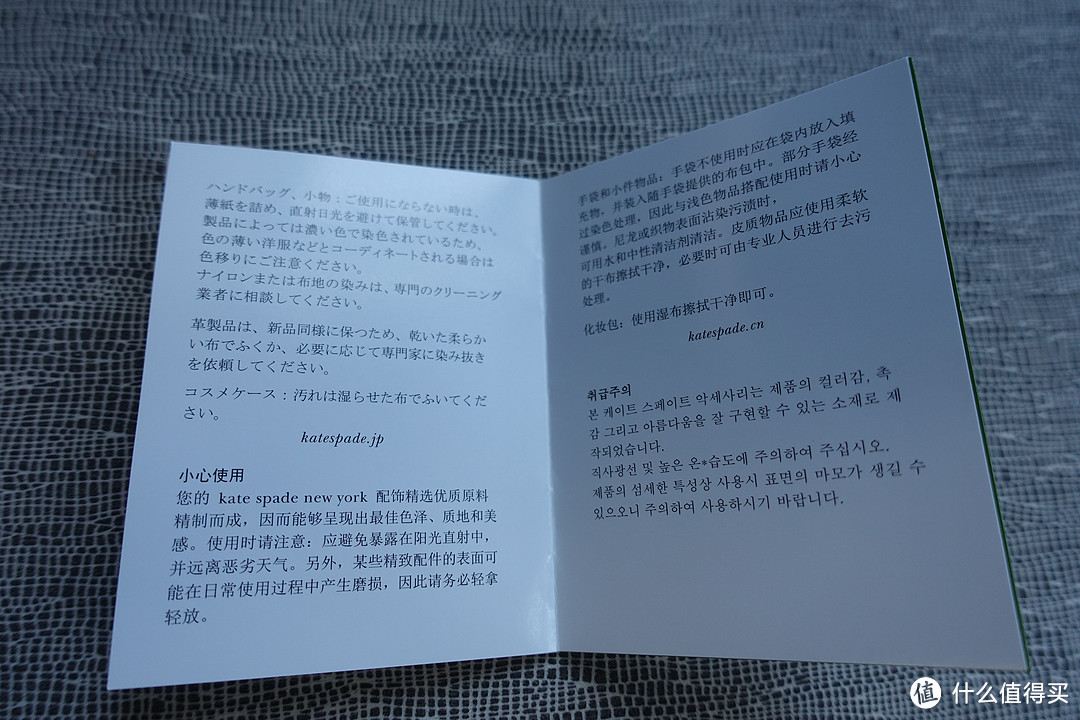 ハンドバッグ、小物：ご使用にならない時は、
薄紙を詰め、直射日光を避けて保管してください。
製品によっては濃い色で染色されているため、
色の薄い洋服などとコーディネートされる場合は
色移りにご注意ください。
ナイロンまたは布地の染みは、専門のクリーニング
業者に相談してください。
革製品は、新品同様に保つため、乾いた柔らか
い布でふくか、必要に応じて専門家に染み抜き
を依頼してください。
コスメケース：汚れは湿らせた布でふいてくだ
さい。
katespade.jp
小心使用
您的 kate spade new york 配饰精选优质原料
精制而成，因而能够呈现出最佳色泽、质地和美
感。使用时请注意：应避免暴露在阳光直射中，
并远离恶劣天气。另外，某些精致配件的表面可
能在日常使用过程中产生磨损，因此请务必轻拿
轻放。
手袋和小件物品：手袋不使用时应在袋内放入填
充物，并装入随手袋提供的布包中。部分手袋经
过染色处理，因此与浅色物品搭配使用时请小心
谨慎。尼龙或织物表面沾染污渍时，
可用水和中性清洁剂清洁。皮质物品应使用柔软
的干布擦拭干净，必要时可由专业人员进行去污
处理。
化妆包：使用湿布擦拭干净即可。
katespade.cn
취급주의
본 케이트 스페이트 악세사리는 제품의 컬러감, 촉
감 그리고 아름다움을 잘 구현할 수 있는 소재로 제
작되었습니다.
직사광선 및 높은 온*습도에 주의하여 주십시오.
제품의 섬세한 특성상 사용시 표면의 마모가 생길 수
있으오니 주의하여 사용하시기 바랍니다.
值 什么值得买